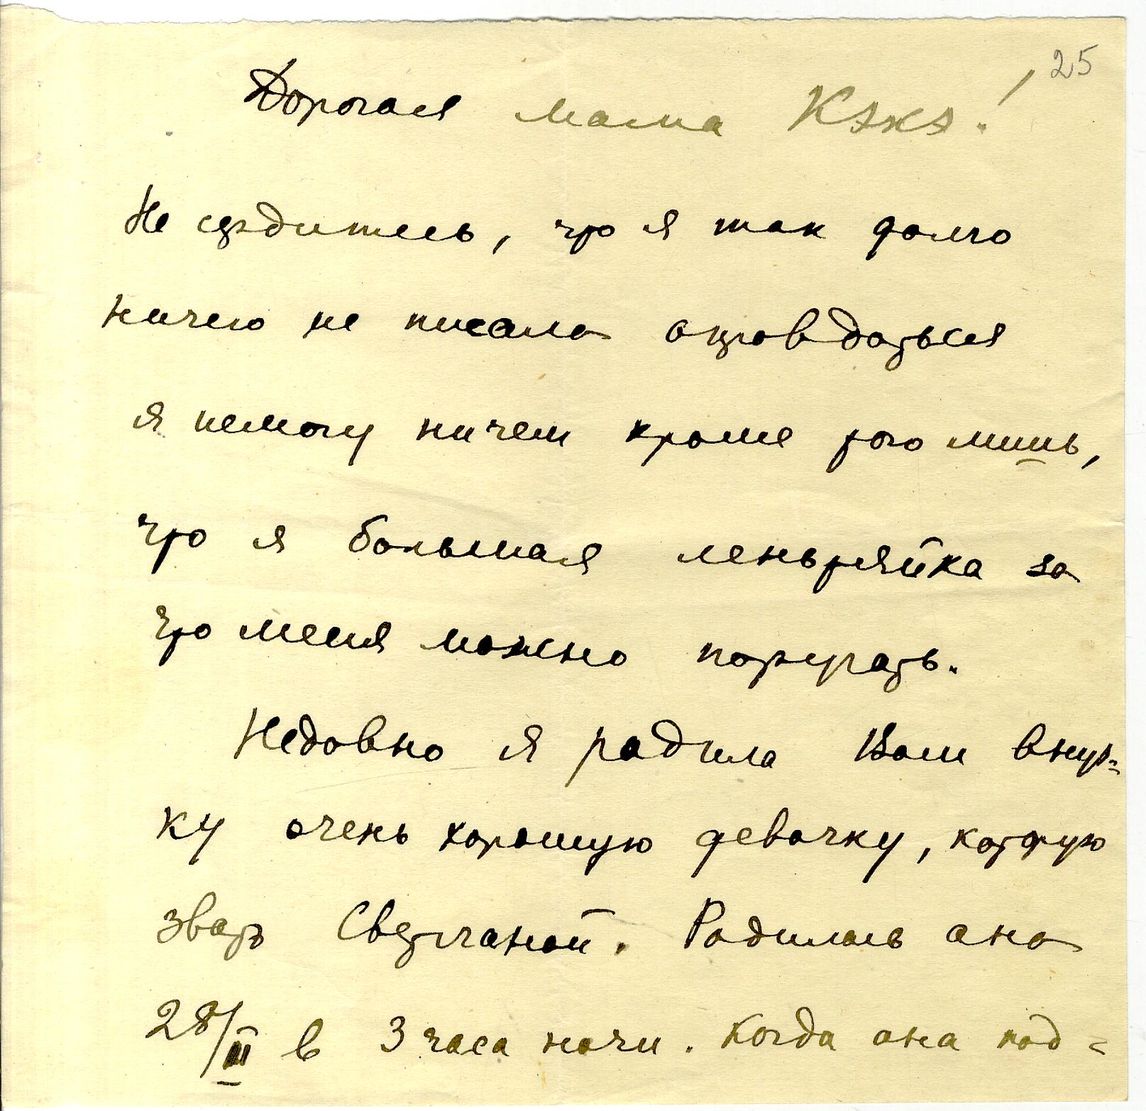 25
Дорогая мама Кэкэ!
Не сердитесь, что я так долго
ничего не писала оправдаться
я немогу ничем кроме того лишь,
что я большая леньтяйка за
что меня можно поругать.
Недавно я радила Вам внуч-
ку очень хорошую девочку, которую
звать Светланой. Родилась она
28/II в 3 часа ночи. Когда она под-